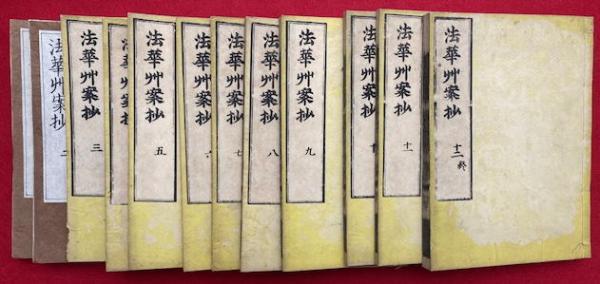 法華艸案抄 二
法華艸案抄 三
法華艸案抄
法華艸案抄 五
法華艸案抄 六
法華艸案抄 七
法華艸案抄 八
法華艸案抄 九
法華艸案抄 十
法華艸案抄 十一
法華艸案抄 十二終